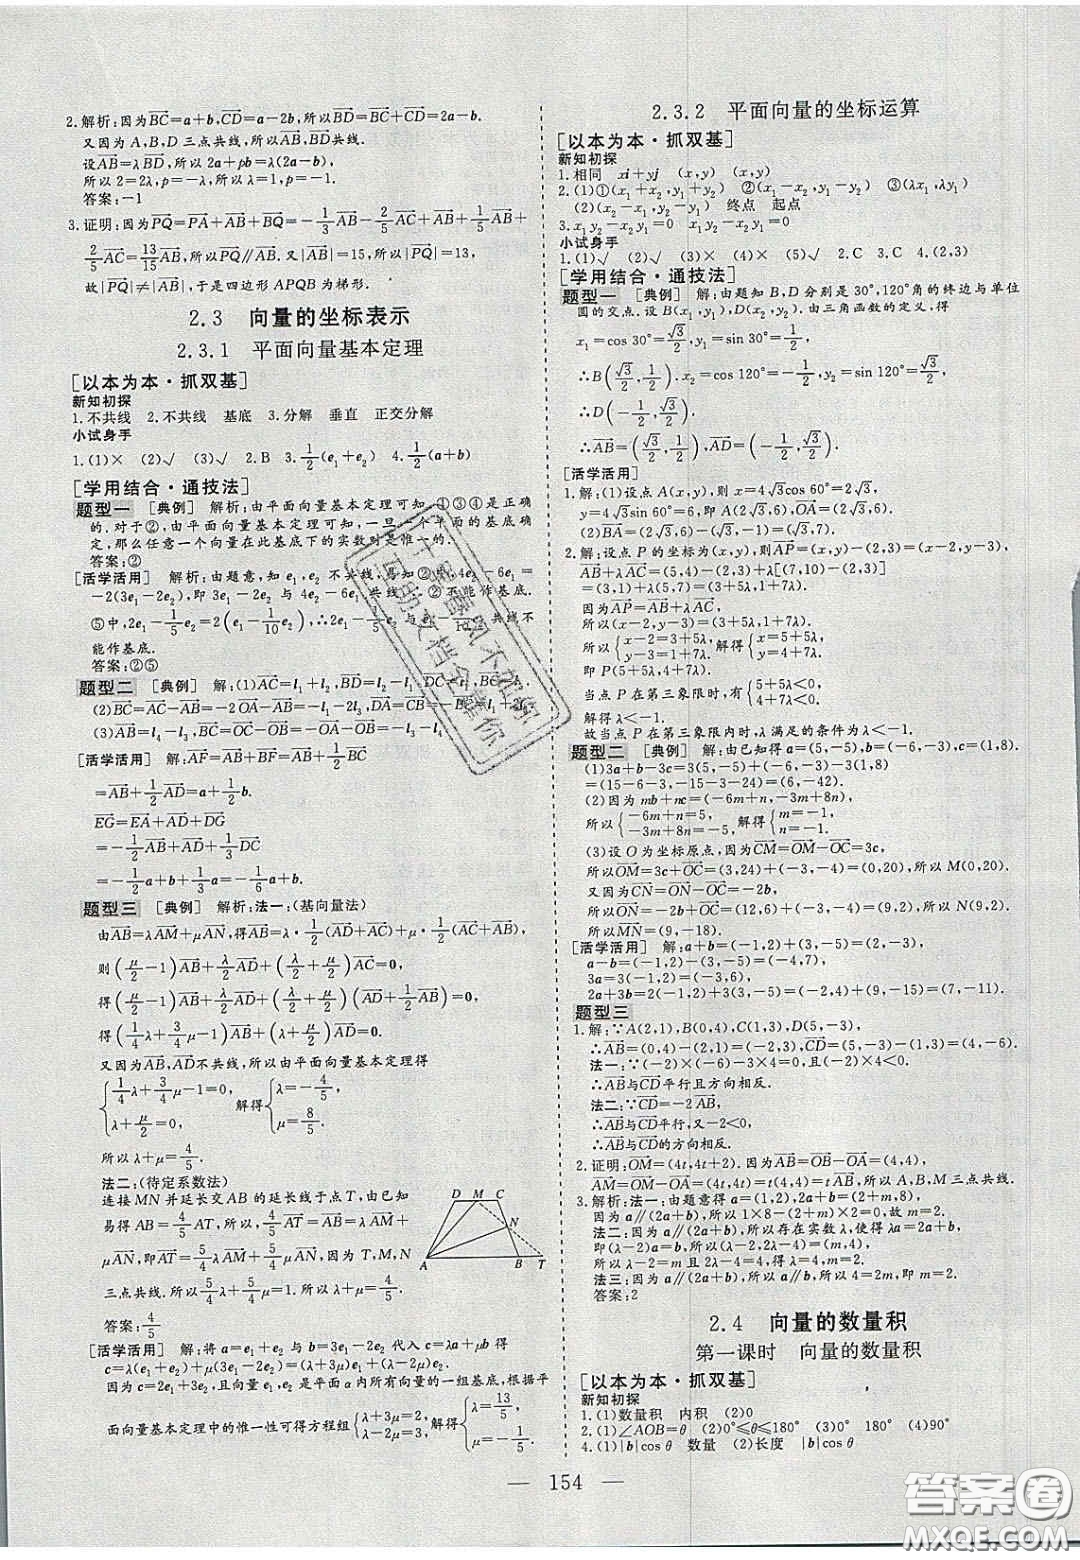 2.解析:因为BC=a+b,CD=a-2b,所以BD=BC+CD=2a-b.
又因为A,B,D三点共线,所以AB,BD共线.
设AB=λBD,所以2a+pb=λ(2a-b).
所以2=2λ,p=-λ,所以λ=1,p=-1.
答案:-1
3.证明:因为PQ=PA+AB+BQ=-1/3AB-2/5AC+AB+1/5AB+
2/5AC=13/15AB,所以PQ∥AB.又|AB|=15,所以|PQ|=13,
故|PQ|≠|AB|,于是四边形APQB为梯形.
2.3 向量的坐标表示
2.3.1 平面向量基本定理
[以本为本·抓双基]
新知初探
1.不共线 2.不共线 基底 3.分解 垂直 正交分解
小试身手
1.(1)× (2)√ (3)√ 2.B 3.1/2(e₁+e₂) 4.1/2(a+b)
[学用结合·通技法]
题型一 [典例] 解析:由平面向量基本定理可知,①③④是正确
的.对于②,由平面向量基本定理可知,一旦一个平面的基底确
定,那么任意一个向量在此基底下的实数对是惟一的.
答案:②
[活学活用] 解析:由题意,知e₁,e₂不共线,易知②中,4e₂-6e₁=
-2(3e₁-2e₂),即3e₁-2e₂与4e₂-6e₁共线,∴②不能作基底.
⑤中,2e₁-1/5e₂=2(e₁-1/10e₂),∴2e₁-1/5e₂与e₁-1/10e₂共线不
能作基底.
答案:②⑤
题型二 [典例] 解:(1)AC=l₁+l₂,BD=l₂-l₁.
(2)BC=AC-AB=-2OA-AB=-l₁-2l₃
(3)AB=l₄-l₃,BC=-OA-OB=-l₃-l₄.
[活学活用] 解:AF=AB+BF=AB+1/2BC
=AB+1/2AD=a+1/2b.
EG=EA+AD+DG
=-1/2AB+AD+1/3DC
=-1/2a+b+1/3a=-1/6a+b.
题型三 [典例] 解析:法一:(基向量法)
由AB=λAM+μAN,得AB=λ·1/2(AD+AC)+μ·1/2(AC+AB),
则(μ/2-1)AB+λ/2AD+(λ/2+μ/2)AC=0,
得(μ/2-1)AB+λ/2AD+(λ/2+μ/2)(AD+1/2AB)=0,
得(1/4λ+3/4μ-1)AB+(λ+μ/2)AD=0.
又因为AB,AD不共线,所以由平面向量基本定理得
{1/4λ+3/4μ-1=0, λ+μ/2=0, 解得{λ=-4/5, μ=8/5.
所以λ+μ=4/5.
法二:(待定系数法)
连接MN并延长交AB的延长线于点T,由已知
易得AB=4/5AT,所以,4/5AT=AB=λAM+
μAN,即AT=5/4λAM+5/4μAN,因为T,M,N
三点共线.所以5/4λ+5/4μ=1.所以λ+μ=4/5.
答案:4/5
D M C N A B T
[活学活用] 解:将a=e₁+e₂与b=3e₁-2e₂代入c=λa+μb得
c=λ(e₁+e₂)+μ(3e₁-2e₂)=(λ+3μ)e₁+(λ-2μ)e₂.
因为c=2e₁+3e₂,且向量e₁,e₂是平面α内所有向量的一组基底,根据平
面向量基本定理中的惟一性可得方程组{λ+3μ=2, λ-2μ=3, 解得{λ=13/5, μ=-1/5.
2.3.2 平面向量的坐标运算
[以本为本·抓双基]
新知初探
1.相同 xi+yj (x,y) (x,y)
2.(1)①(x₁+x₂,y₁+y₂) ②(x₁-x₂,y₁-y₂) ③(λx₁,λy₁)
(2)(x₂-x₁,y₂-y₁) 终点 起点
3.x₁y₂-x₂y₁=0 x₁y₂-x₂y₁=0
小试身手
1.(1)√ (2)√ (3)× (4)× (5)√ 2.C 3.C 4.(-3,-5)
[学用结合·通技法]
题型一 [典例] 解:由题知B,D分别是30°,120°角的终边与单位
圆的交点.设B(x₁,y₁),D(x₂,y₂).由三角函数的定义,得
x₁=cos 30°=√3/2,y₁=sin 30°=1/2,
∴B(√3/2,1/2).x₂=cos 120°=-1/2,y₂=sin 120°=√3/2,
∴D(-1/2,√3/2).
∴AB=(√3/2,1/2),AD=(-1/2,√3/2).
[活学活用]
1.解:(1)设点A(x,y),则x=4√3cos 60°=2√3,
y=4√3sin 60°=6,即A(2√3,6),OA=(2√3,6).
(2)BA=(2√3,6)-(√3,-1)=(√3,7).
2.解:设点P的坐标为(x,y),则AP=(x,y)-(2,3)=(x-2,y-3),
AB+λAC=(5,4)-(2,3)+λ[(7,10)-(2,3)]
=(3,1)+λ(5,7)=(3+5λ,1+7λ).
因为AP=AB+λAC,
所以{x-2=3+5λ, y-3=1+7λ, 解得{x=5+5λ, y=4+7λ.
即P(5+5λ,4+7λ).
当点P在第三象限时,有{5+5λ<0, 4+7λ<0,
解得λ<-1.
故当点P在第三象限内时,λ满足的条件为λ<-1.
题型二 [典例] 解:由已知得a=(5,-5),b=(-6,-3),c=(1,8).
(1)3a+b-3c=3(5,-5)+(-6,-3)-3(1,8)
=(15-6-3,-15-3-24)=(6,-42).
(2)因为mb+nc=(-6m+n,-3m+8n),
所以{-6m+n=5, -3m+8n=-5, 解得{m=-1, n=-1.
(3)设O为坐标原点,因为CM=OM-OC=3c,
所以OM=3c+OC=(3,24)+(-3,-4)=(0,20),所以M(0,20).
又因为CN=ON-OC=-2b,
所以ON=-2b+OC=(12,6)+(-3,-4)=(9,2),所以N(9,2).
所以MN=(9,-18).
[活学活用] 解:a+b=(-1,2)+(3,-5)=(2,-3),
a-b=(-1,2)-(3,-5)=(-4,7),
3a=3(-1,2)=(-3,6),
2a+3b=2(-1,2)+3(3,-5)=(-2,4)+(9,-15)=(7,-11).
题型三
1.解:∵A(2,1),B(0,4),C(1,3),D(5,-3),
∴AB=(0,4)-(2,1)=(-2,3),CD=(5,-3)-(1,3)=(4,-6).
法一:∵(-2)×(-6)-3×4=0,且(-2)×4<0.
∴AB与CD平行且方向相反.
法二:∵CD=-2AB,
∴AB与CD平行,又-2<0,
∴AB与CD的方向相反.
2.证明:OM=(4t,4t+2).因为AB=OB-OA=(4,4),
AM=OM-OA=(4t,4t)=t(4,4)=tAB,所以A,B,M三点共线.
3.解析:法一:由题意得a=(1,2),2a+b=(4,m+4),
因为a∥(2a+b),所以1×8-(2+m)×2=0,故m=2.
法二:因为a∥(2a+b),所以存在实数λ,使得λa=2a+b,
即(λ-2)a=b,所以(λ-2,2λ-4)=(2,m),
所以λ-2=2且2λ-4=m,解得m=4.
法三:因为a∥(2a+b),所以a∥b,所以4=2m,即m=2.
答案:2
2.4 向量的数量积
第一课时 向量的数量积
[以本为本·抓双基]
新知初探
1.(1)数量积 内积 (2)0
2.(1)∠AOB=θ (2)0°≤θ≤180° (3)0° 180° (4)90°
4.(1)|b|cosθ 数量 (2)长度 |b|cosθ
— 154 —
答案圈
MXQE.COM